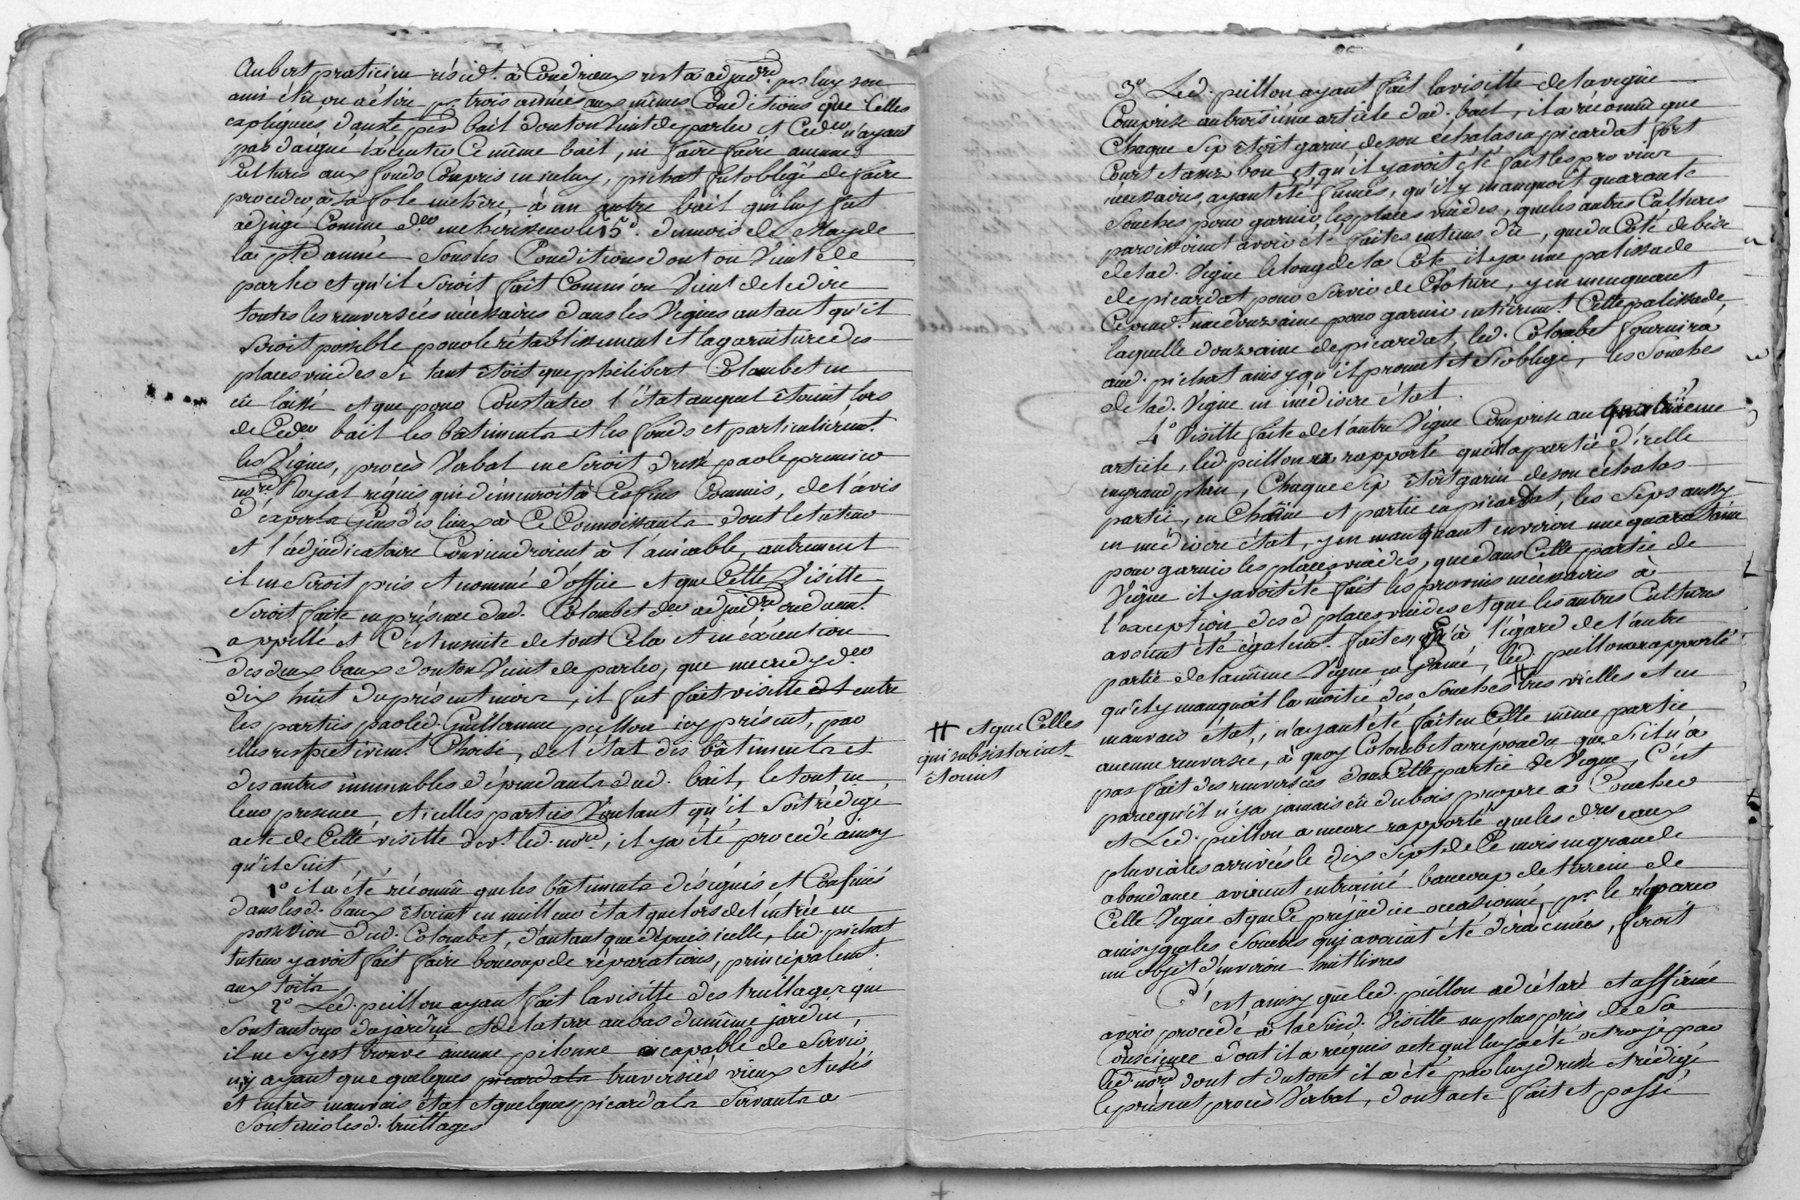 Aubert praticien résidt. à Condrieux resta adjudre. pr. luy son
ami élû ou à élire pr. trois années aux mêmes Conditions que Celles
expliquées dans le per. bail dont on Vient de parler et Ceder. n'ayant
pas daigné éxécuter Ce même bail, ni faire faire aucunes
Cultures aux fonds Compris en iceluy, pichat fut obligé de faire
proceder à la fole enchère à un autre bail qui luy fut
adjugé Comme der. encherisseur le 15e. du mois de May de
la pte. année Sous les Conditions dont on Vient de
parler et qu'il Seroit fait Comme on Vient de le dire
toutes les renversées nécessaires dans les Vignes autant qu'il
Seroit possible pour le rétablissement et la garniture des
places vuides Si tant étoit que philibert Colombet en
eût laissé et que pour Constater l'état auquel étoient lors
de Ceder. bail les bâtiments et les fonds et particulièremt.
les Vignes, procès Verbal en Seroit dressé par le premier
nore. Royal réquis qui démeuroit à Ces fins Commis, de l'avis
d'experts Gens des lieux à Ce Connoissants dont le tuteur
et l'adjudicataire Conviendroient à l'amiable, autrement
il en Seroit pris et nommé d'office et que Cette Visitte
Seroit faite en présence dud. Colombet der. adjudre. ou duemt.
appellé et C'est ensuite de tout Cela et en éxécution
des deux baux dont on Vient de parler, que mercredy der.
dix huit du présent mois, il fut fait visitte entre
les parties par led. Guillaume peillon icy présent, par
elles respectivemt. Choisi, de l'état des bâtiments et
des autres immeubles dépendants dud. bail, le tout en
leur presence, et icelles parties Voulant qu'il Soit rédigé
acte de Cette visitte devt. led. nore., il y a été procedé ainsy
qu'il Suit
1o il a été réconnu que les bâtiments désignés et Confinés
dans lesd. baux étoient en meilleur état que lors de l'entrée en
possession dud. Colombet, d'autant que dépuis icelle, led. pichat
tuteur y avoit fait faire boucoup de réparations, principalemt.
aux toits
2o Led. peillon ayant fait la visitte des treillages qui
Sont autour du jardin et de la terre au bas du même jardin,
il ne S'y est trouvé aucune pilonne capable de Servir
n'y ayant que quelques picardats traversiers vieux et usés
et en très mauvais état et quelques picardats Servants a
Soutenir lesd. treillages
3o Led. peillon ayant fait la visitte de la vigne
Comprise au troisième article dud. bail, il a réconnu que
Chaque Sep étoit garni de son échalas en picardat fort
Court et assez bon et qu'il y avoit été fait les provins
nécessaires, ayant été fumés, qu'il y manquoit quarante
Souches pour garnir les places vuides, que les autres Cultures
paroissoient avoir été faites en tems dû, que du Côté de bize
de lad. Vigne le long de la Côte il y a une palissade
de picardat pour Servir de Clôture, y en manquant
Cependt. une douzaine pour garnir entièremt. Cette palissade,
laquelle douzaine de picardat, led. Colombet fournira
aud. pichat ainsy qu'il promet et S'oblige, les Souches
de lad. Vigne en médiocre état.
4o Visitte faite de l'autre Vigne Comprise au quatrième
article, led. peillon a rapporté que la partie d'icelle
en grand plan, Chaque Sep étoit garni de son échalas
partie, en Chêne et partie en picardat, les Seps aussy
en médiocre état, y en manquant environ une quarantaine
pour garnir les places vuides, que dans Cette partie de
Vigne il y avoit été fait les provins nécessaires à
l'exception desd. places vuides et que les autres Cultures
avoient été égalemt. faites, qu'à l'égard de l'autre
partie de la même Vigne en Gamé, led. peillon a rapporté
qu'il y manquoit la moitié des Souches ++ très vielles et en
mauvais état, n'ayant été fait en Cette même partie
aucune renversée, à quoy Colombet a répondu que S'il n'a
pas fait des renversées dans Cette partie de Vigne, C'est
parce qu'il n'y a jamais eû du bois propre à Coucher
et Led. peillon a encore rapporté que les dres. eaux
pluviales arrivées le dix Sept de Ce mois en grande
abondance avoient entrainé baucoup de terrein de
Cette Vigne et que Ce préjudice occasionné, pr. le réparer
ainsy que les Souches qui avoient été déracinées, Seroit
un objet d'environ huit livres
C'est ainsy que led. peillon a déclaré et affirmé
avoir procedé à la Susd. Visitte au plus près de Sa
Conscience dont il a réquis acte qui luy a été octroyé par
led. nore. dont et du tout il a été par luy dressé et rédigé
le présent procès Verbal, dont acte fait et passé
++ et que Celles
qui subsistoient
étoient